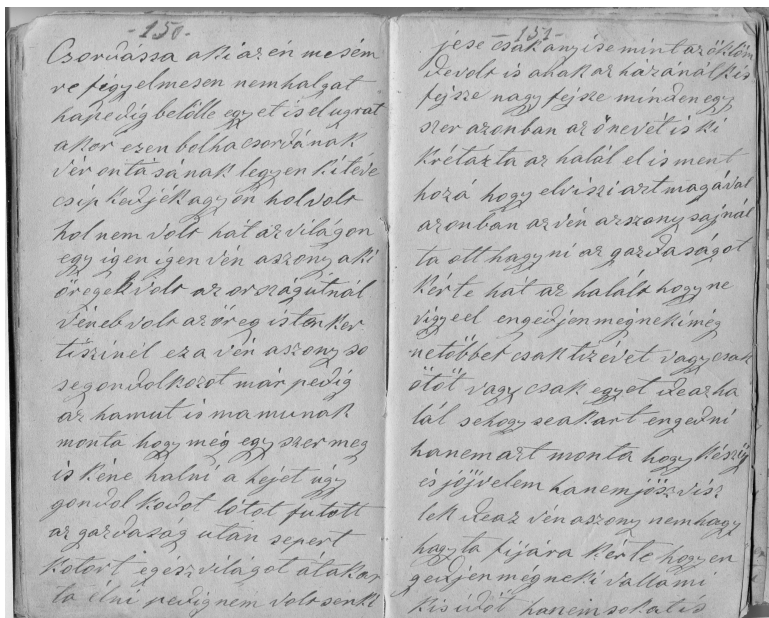 -150-
Csordássa aki az én mesém
re figyelmesen nem halgat
hapedig belölle egyet is el ugrat
akor ezen bolha csordának
vér ontásának legyen kitéve
csipkedjék agyon hol volt
hol nem volt hát az világon
egy igen igen vén aszony aki
öregebb volt az országútnál
véneb volt az öreg isten ker
tiszinél ez a vén aszony so
se gondolkozot már pedig
az hamut is mamunak
monta hogy még egyszer meg
is kéne halni a hejet úgy
gondolkodot lótot futott
az gazdaság után sepert
kotort egesz világot át akar
ta élni pedig nem volt senki
-151-
jese csak anyi se mint az öklöm
de volt is ahak az házánál kis
fejsze nagy fejsze minden egy
szer azonban az ö nevét is ki
krétazta az halál el is ment
hozá hogy elviszi azt magával
azonban az vén arszony sajnál
ta ott hagyni az gazdaságot
kérte hát az halált hogy ne
vigye el engedjen még neki még
ne többet csak tiz évet vagy csak
ötöt vagy csak egyet de az ha
lál sehogy se akart engedni
hanem azt monta hogy készöj
és jöjj velem hanem jösz visz
lek de az vén aszony nem hagy
hagyta fijára kérte hogy en
gedjen még neki vallami
kis idöt hanem sokat is